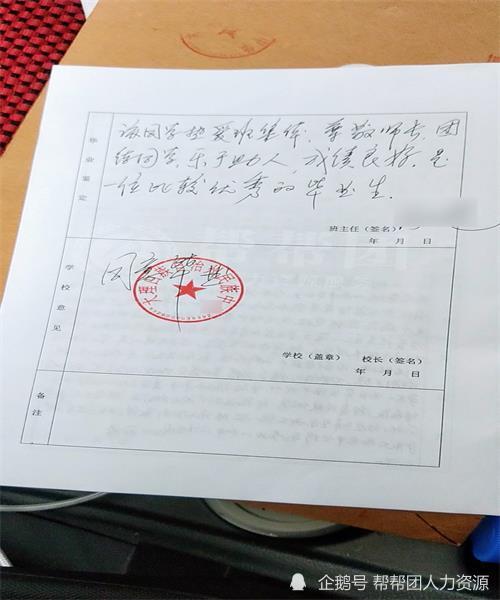 毕业鉴定
该同学热爱班集体，尊敬师长，团
结同学，乐于助人，成绩良好，是
一位比较优秀的毕业生.
班主任（签名）
年 月 日
学校意见
同意毕业
学校（盖章） 校长（签名）
年 月 日
备注
企鹅号 帮帮团人力资源